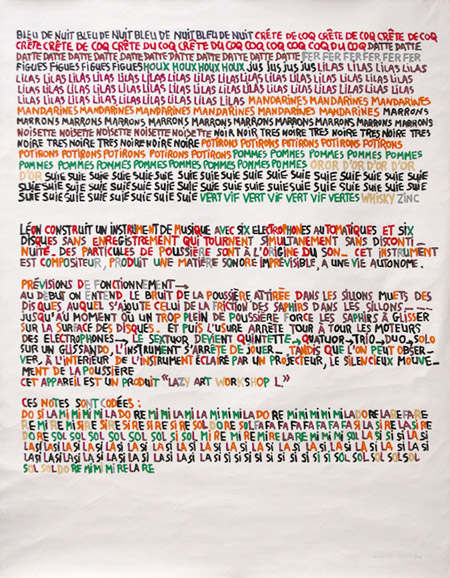 BLEU DE NUIT BLEU DE NUIT BLEU DE NUIT BLEU DE NUIT CRÊTE DE COQ CRÊTE DE COQ
CRÊTE DE COQ CRÊTE DU COQ CRÊTE DU COQ COQ COQ COQ COQ DU COQ DATTE DATTE
DATTE DATTE DATTE DATTE DATTE DATTE DATTE DATTE DATTE FER FER FER FER FER FER
FIGUES FIGUES FIGUES FIGUES HOUX HOUX HOUX HOUX JUS JUS JUS JUS LILAS LILAS LILAS
LILAS LILAS LILAS LILAS LILAS LILAS LILAS LILAS LILAS LILAS LILAS LILAS LILAS
LILAS LILAS LILAS LILAS LILAS LILAS LILAS LILAS LILAS LILAS LILAS LILAS LILAS
LILAS LILAS LILAS LILAS LILAS LILAS LILAS MANDARINES MANDARINES MANDARINES
MANDARINES MANDARINES MANDARINES MANDARINES MANDARINES MANDARINES MARRONS
MARRONS MARRONS MARRONS MARRONS MARRONS MARRONS MARRONS MARRONS MARRONS
NOISETTE NOISETTE NOISETTE NOISETTE NOISETTE NOIR NOIR NOIRE TRES NOIRE TRES NOIRE TRES
NOIRE TRES NOIRE TRES NOIRE NOIRE NOIRE POTIRONS POTIRONS POTIRONS POTIRONS
POTIRONS POTIRONS POTIRONS POTIRONS POTIRONS POMMES POMMES POMMES POMMES
POMMES POMMES POMMES POMMES POMMES POMMES POMMES OR OR D'OR D'OR D'OR
D'OR SUIE SUIE SUIE SUIE SUIE SUIE SUIE SUIE SUIE SUIE SUIE SUIE SUIE
SUIE SUIE SUIE SUIE SUIE SUIE SUIE SUIE SUIE SUIE SUIE SUIE SUIE SUIE
SUIE SUIE SUIE SUIE SUIE SUIE VERT VIF VERT VIF VERT VIF VERTES WHISKY ZINC
LÉON CONSTRUIT UN INSTRUMENT DE MUSIQUE AVEC SIX ELECTROPHONES AUTOMATIQUES ET SIX
DISQUES SANS ENREGISTREMENT QUI TOURNENT SIMULTANEMENT SANS DISCONTI-
NUITÉ. DES PARTICULES DE POUSSIÈRE SONT À L'ORIGINE DU SON. CET INSTRUMENT
EST COMPOSITEUR, PRODUIT UNE MATIÈRE SONORE IMPRÉVISIBLE, A UNE VIE AUTONOME.
PRÉVISIONS DE FONCTIONNEMENT →
AU DEBUT ON ENTEND, LE BRUIT DE LA POUSSIÈRE ATTIRÉE DANS LES SILLONS MUETS DES
DISQUES AUQUEL S'AJOUTE CELUI DE LA FRICTION DES SAPHIRS DANS LES SILLONS, —
JUSQU'AU MOMENT OÙ UN TROP PLEIN DE POUSSIÈRE FORCE LES SAPHIRS À GLISSER
SUR LA SURFACE DES DISQUES. ET PUIS L'USURE ARRÊTE TOUR À TOUR LES MOTEURS
DES ELECTROPHONES → LE SEXTUOR DEVIENT QUINTETTE → QUATUOR → TRIO → DUO → SOLO
SUR UN GLISSANDO, L'INSTRUMENT S'ARRÊTE DE JOUER → TANDIS QUE L'ON PEUT OBSER-
VER, À L'INTÉRIEUR DE L'INSTRUMENT ÉCLAIRÉ PAR UN PROJECTEUR, LE SILENCIEUX MOUVE-
MENT DE LA POUSSIÈRE
CET APPAREIL EST UN PRODUIT "LAZY ART WORKSHOP L."
CES NOTES SONT CODÉES :
DO SI LA MI MI MI MI LA DO RE MI MI LA MI LA MI MI MI LA DO RE MI MI MI MI MI LA DO RE LA RE FA RE